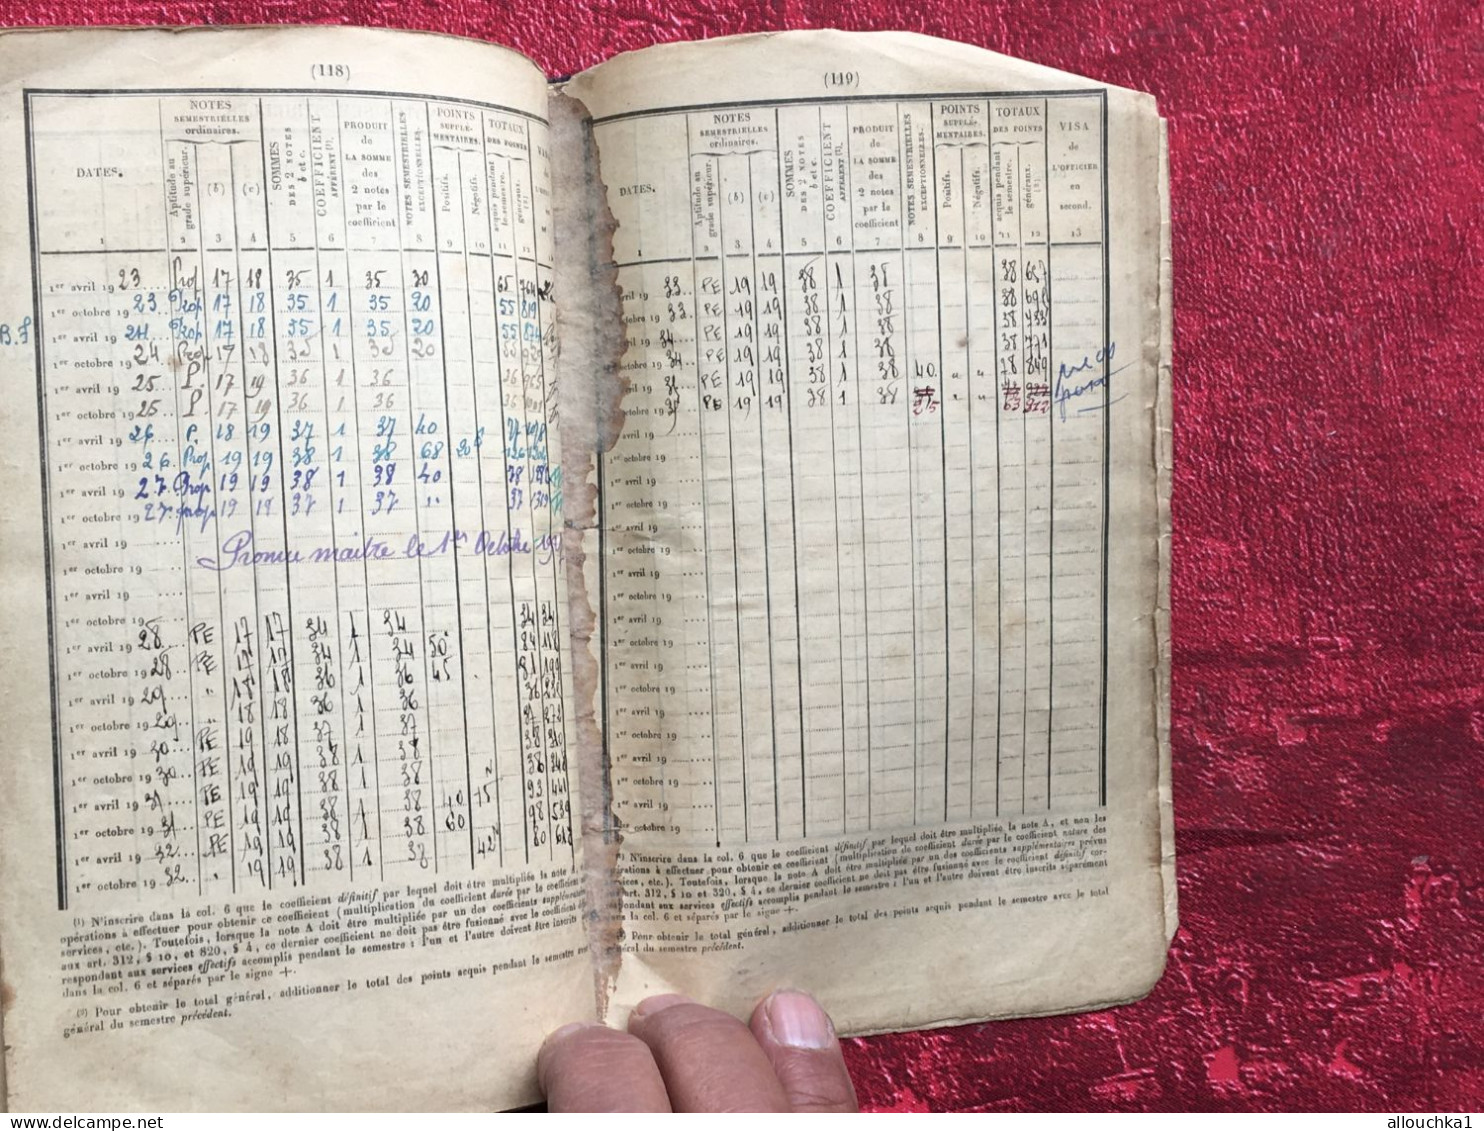 (118)
DATES.
NOTES
SEMESTRIELLES
ordinaires.
Aptitude au
grade supérieur.
(b)
(c)
SOMMES
DES 2 NOTES
b et c.
COEFFICIENT
AFFÉRENT (1).
PRODUIT
de
LA SOMME
des
2 notes
par le
coefficient
NOTES SEMESTRIELLES
EXCEPTIONNELLES.
POINTS
SUPPLÉ-
MENTAIRES.
Positifs.
Négatifs.
TOTAUX
DES POINTS
acquis pendant
le semestre.
généraux.
1 2 3 4 5 6 7 8 9 10 11 12
1er avril 1923 Prop 17 18 35 1 35 30 65 764
1er octobre 1923 Prop 17 18 35 1 35 20 55 819
B.S 1er avril 1924 Prop 17 18 35 1 35 20 55 874
1er octobre 1924 Prop 17 18 35 1 35 20
1er avril 1925 P. 17 19 36 1 36 36 965
1er octobre 1925 P. 17 19 36 1 36 36
1er avril 1926 P. 18 19 37 1 37 40 77
1er octobre 1926 Prop 19 19 38 1 38 68 20
1er avril 1927 Prop 19 19 38 1 38 40 78
1er octobre 1927 prop 19 19 37 1 37 " 37
1er avril 19
Promu maitre le 1er Octobre 1927
1er octobre 19
1er avril 19
1er octobre 19
1er avril 1928 PE 17 17 34 1 34 34 34
1er octobre 1928 PE 17 17 34 1 34 50 84 118
1er avril 1929 " 18 18 36 1 36 45 81 199
1er octobre 1929 " 18 18 36 1 36 36
1er avril 1930 PE 19 18 37 1 37 37 272
1er octobre 1930 PE 19 19 38 1 38 38 310
1er avril 1931 PE 19 19 38 1 38 38 348
1er octobre 1931 PE 19 19 38 1 38 40 15 93 441
1er avril 1932 PE 19 19 38 1 38 60 98 539
1er octobre 1932 " 19 19 38 1 38 42 80
(1) N'inscrire dans la col. 6 que le coefficient définitif par lequel doit être multipliée la note A,
opérations à effectuer pour obtenir ce coefficient (multiplication du coefficient durée par le coefficient
services, etc.). Toutefois, lorsque la note A doit être multipliée par un des coefficients supplémentaires
aux art. 312, § 10, et 820, § 4, ce dernier coefficient ne doit pas être fusionné avec le coefficient
respondant aux services effectifs accomplis pendant le semestre : l'un et l'autre doivent être inscrits
dans la col. 6 et séparés par le signe +.
(2) Pour obtenir le total général, additionner le total des points acquis pendant le semestre avec
général du semestre précédent.
(119)
DATES.
NOTES
SEMESTRIELLES
ordinaires.
Aptitude au
grade supérieur.
(b)
(c)
SOMMES
DES 2 NOTES
b et c.
COEFFICIENT
AFFÉRENT (1).
PRODUIT
de
LA SOMME
des
2 notes
par le
coefficient
NOTES SEMESTRIELLES
EXCEPTIONNELLES.
POINTS
SUPPLÉ-
MENTAIRES.
Positifs.
Négatifs.
TOTAUX
DES POINTS
acquis pendant
le semestre.
généraux.
(2)
VISA
de
L'OFFICIER
en
second.
1 2 3 4 5 6 7 8 9 10 11 12 13
avril 1933 PE 19 19 38 1 38 38 657
octobre 1933 PE 19 19 38 1 38 38
avril 1934 PE 19 19 38 1 38 38 733
octobre 1934 PE 19 19 38 1 38 38 771
avril 1935 PE 19 19 38 1 38 40 " " 78 849
octobre 1935 PE 19 19 38 1 38 25 " " 63 912
avril 19
1er octobre 19
1er avril 19
1er octobre 19
1er avril 19
1er octobre 19
1er avril 19
1er octobre 19
1er avril 19
1er octobre 19
1er avril 19
1er octobre 19
1er avril 19
1er octobre 19
1er avril 19
1er octobre 19
1er avril 19
1er octobre 19
N'inscrire dans la col. 6 que le coefficient définitif par lequel doit être multipliée la note A, et non les
opérations à effectuer pour obtenir ce coefficient (multiplication du coefficient durée par le coefficient nature des
services, etc.). Toutefois, lorsque la note A doit être multipliée par un des coefficients supplémentaires prévus
art. 312, § 10 et 320, § 4, ce dernier coefficient ne doit pas être fusionné avec le coefficient définitif cor-
respondant aux services effectifs accomplis pendant le semestre : l'un et l'autre doivent être inscrits séparément
dans la col. 6 et séparés par le signe +.
Pour obtenir le total général, additionner le total des points acquis pendant le semestre avec le total
général du semestre précédent.
allouchka1